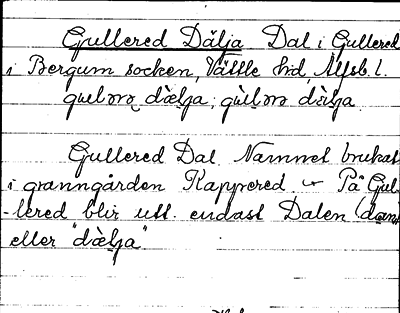 Gullered Dälja Dal i Gullered
i Bergum socken, Vättle hd, Älfsb. l.
Gullered Dal. Namnet brukat
i granngården Kappered. På Gul-
-lered blir utt. endast Dalen
eller "dæ̀lja"